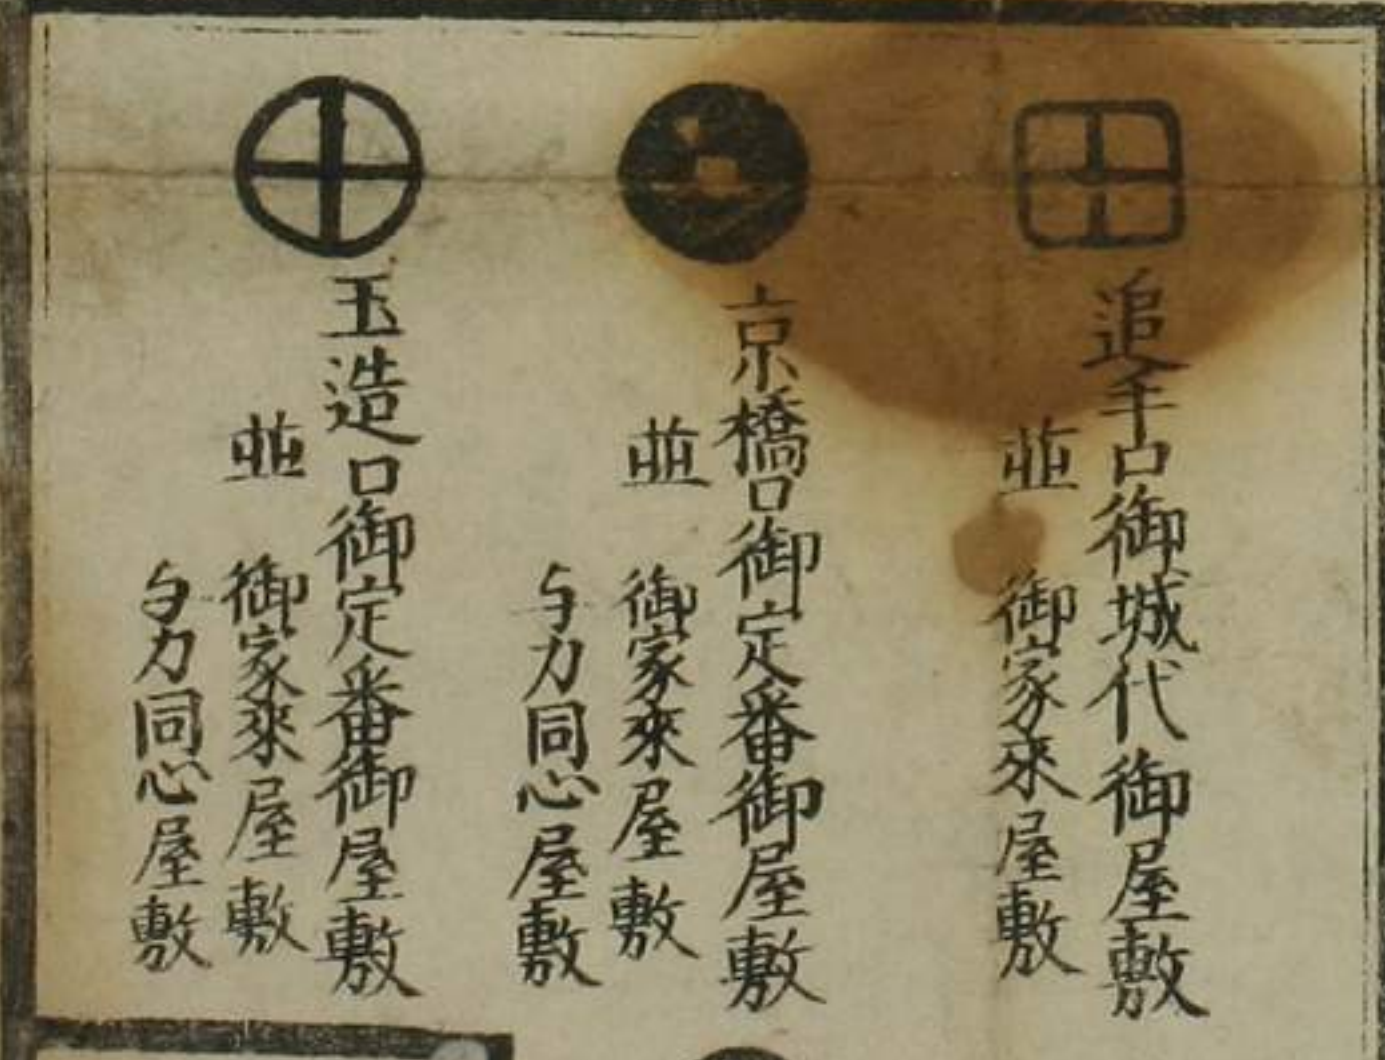 追手口御城代御屋敷
並 御家来屋敷
京橋口御定番御屋敷
並 御家来屋敷
与力同心屋敷
玉造口御定番御屋敷
並 御家来屋敷
与力同心屋敷